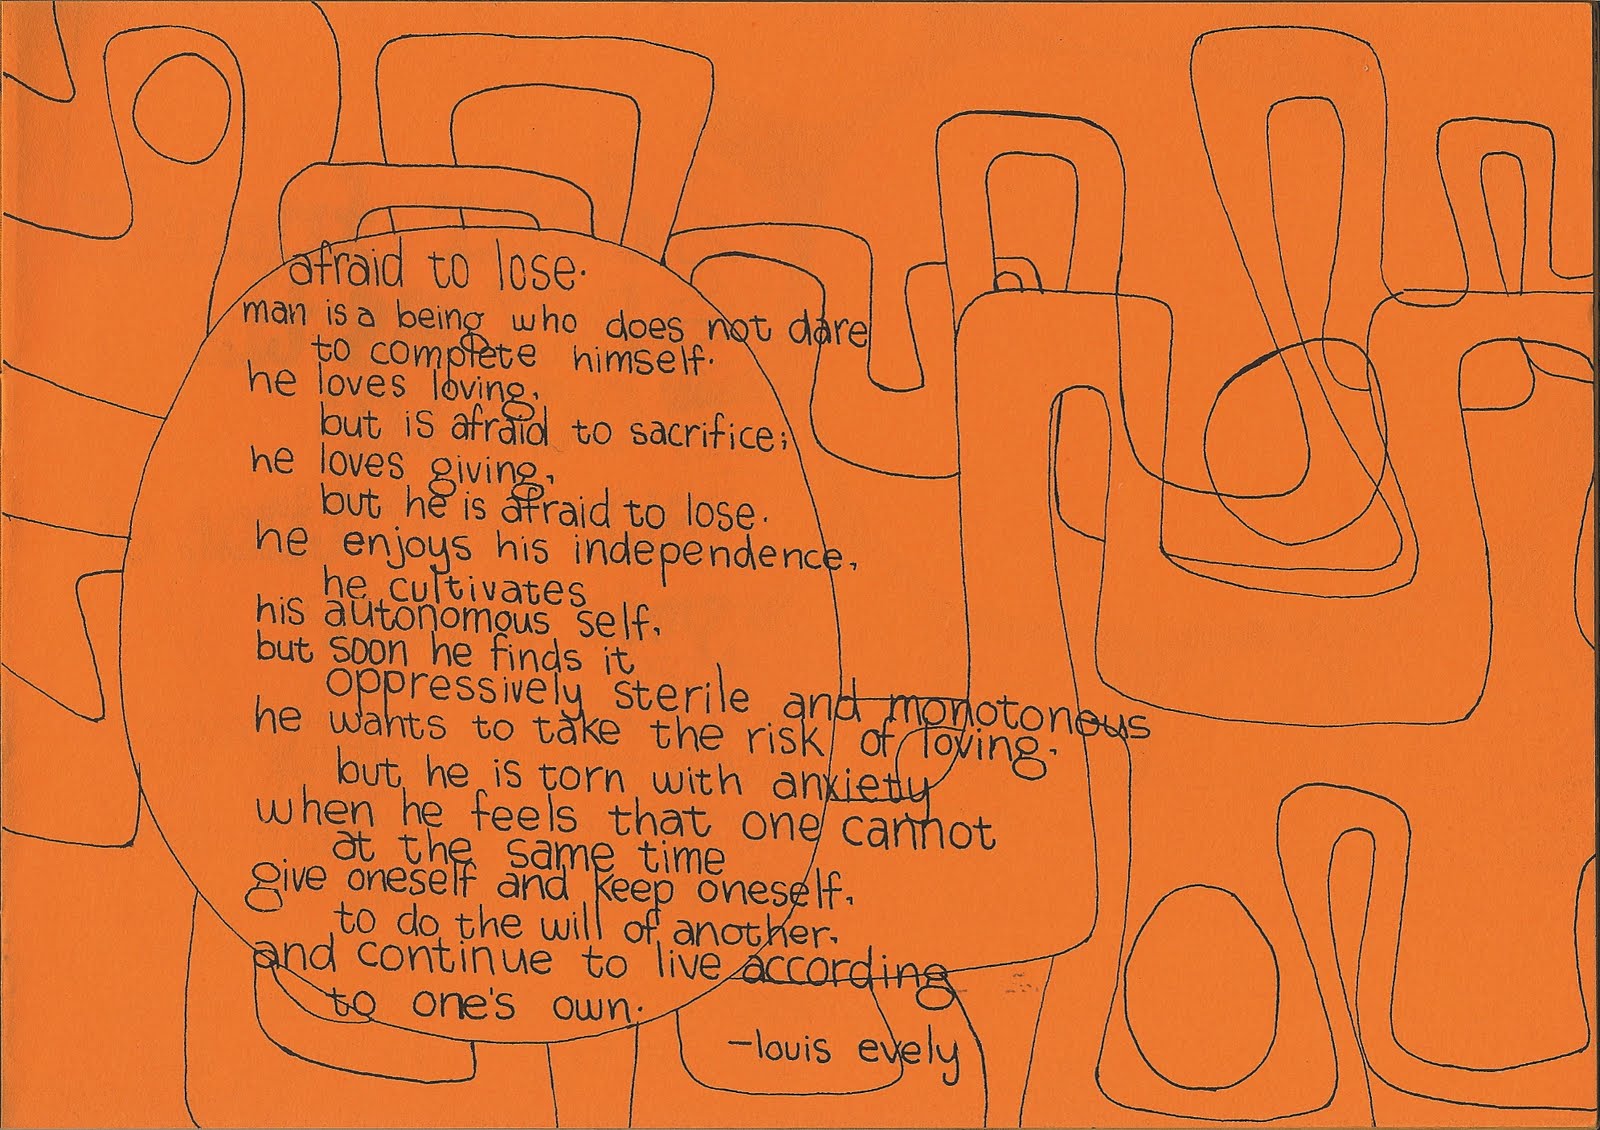 afraid to lose.
man is a being who does not dare
to complete himself.
he loves loving,
but is afraid to sacrifice;
he loves giving,
but he is afraid to lose.
he enjoys his independence,
he cultivates
his autonomous self,
but soon he finds it
oppressively sterile and monotonous
he wants to take the risk of loving,
but he is torn with anxiety
when he feels that one cannot
at the same time
give oneself and keep oneself,
to do the will of another,
and continue to live according
to one's own.
-louis evely